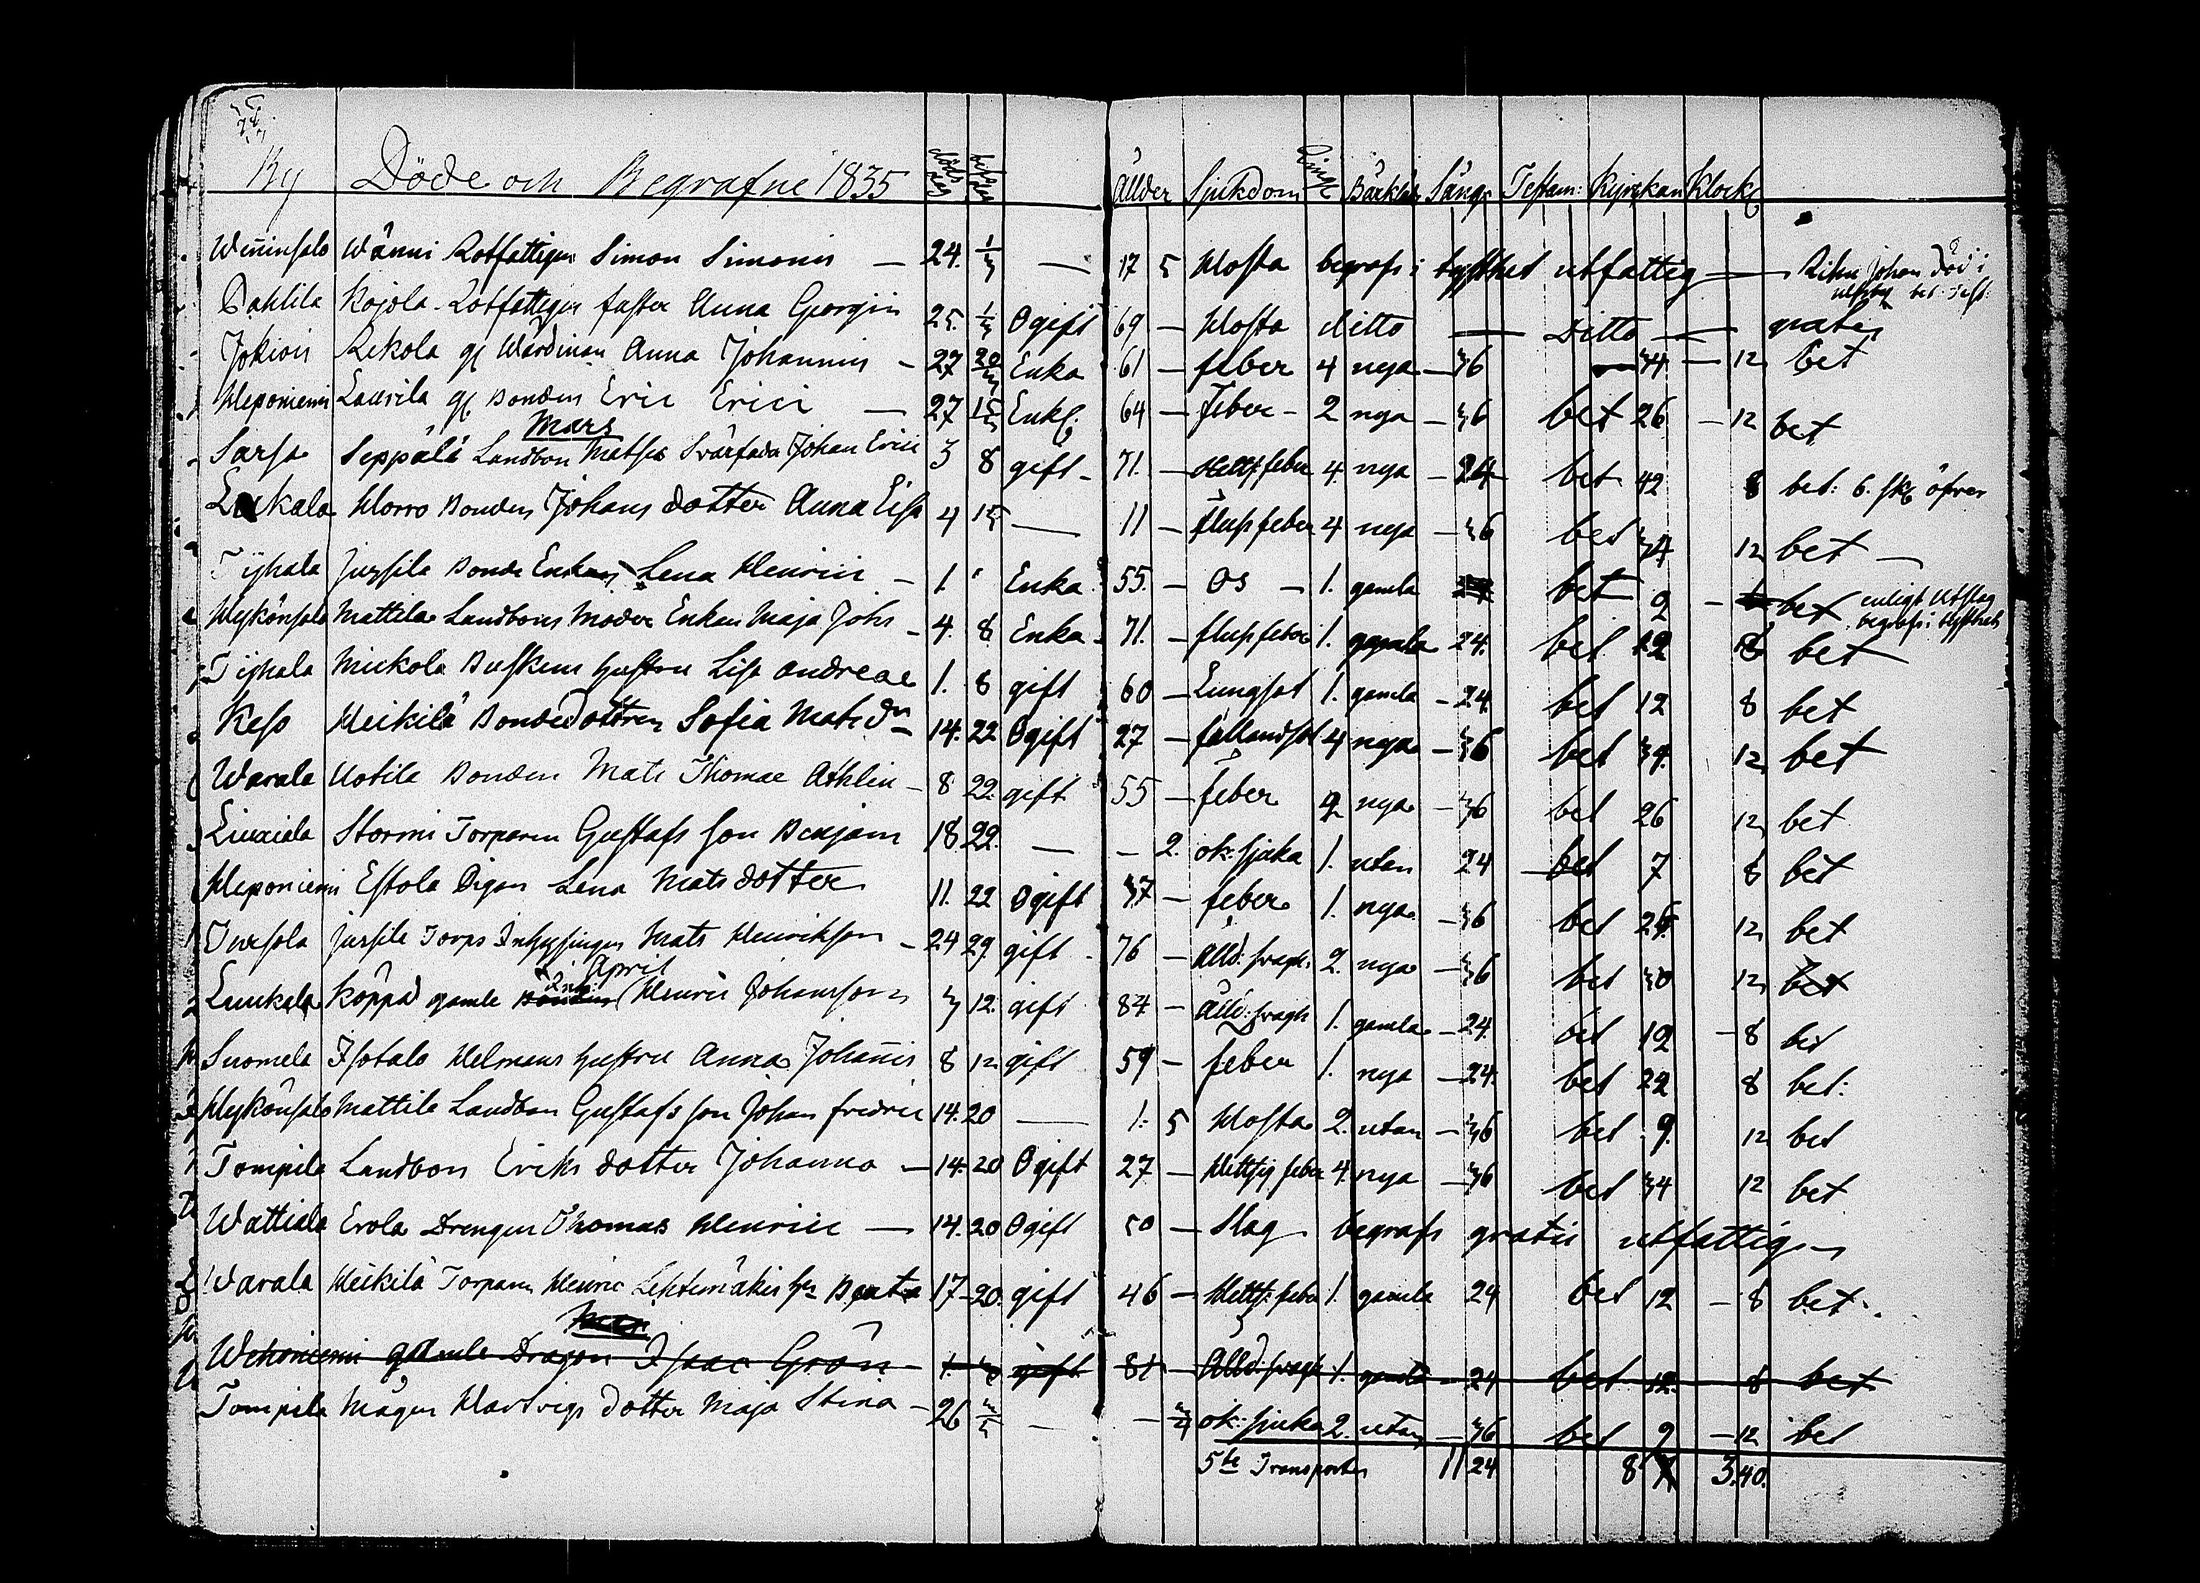 By Döde och Begrafne 1835 döds dag beg dag Ålder Sjukdom Ring Bårkläde Sång Testam: Kyrkan Klock
Weninsalo Wänni Rotfattigen Simon Simonis — 24. 1/3 — 17 5 Hosta begrafs i tysthet utfattig —
Dahlila Kojola Rotfattigen faster Anna Georgii 25. 1/3 Ogift 69 — Hosta ditto — Ditto — gratis
Jokiois Rekola gl Wärdinan Anna Johannis — 27 Enka 61 — feber 4 nya — 36 34 — 12 bet
Heponiemi Laurila gl Bonden Eric Erici — 27 15 Enkl. 64 — Feber — 2 nya — 36 bet 26 — 12 bet
Mars
Sarsa Seppälä Landbon Matses Svärfader Johan Erici 3 8 gift — 71. — Hettsfeber 4. nya — 24 bet 42 8 bet: 6. sk öfver
Liukala Horro Bonden Johans dotter Anna Lisa 4 15 — 11 — flussfeber 4 nya — 36 bet 34 12 bet —
Tyhala Jussila Bonde Enkan Lena Henrici — 1. Enka 55. — Os — 1. gamla bet 9 — bet enligt Utslag begrafs i tysthet
Hykönsalo Mattila Landbons Moder Enkan Maja Johs — 4. 8 Enka — 71. — flussfeber 1. gamla 24. bet 12 8 bet
Tyhala Mickola Buskens hustru Lisa Andreae 1. 8 gift 60 — Lungsot 1. gamla — 24. bet 12 8 bet
Keso Heikilä Bondedottren Sofia Mats dr — 14. 22 Ogift 27 — fallandsot 4 nya — 36 bet 34. 12 bet
Warala Uotila Bonden Mats Thomae Athlin — 8 22. gift 55 — feber 2 nya — 36 bet 26 12 bet
Liuxiala Stormi Torparen Gustafs son Benjam 18. 22. — — 2. ok: sjuka 1. utan 24 bet 7 8 bet
Heponiemi Estola Pigan Lena Mats dotter 11. 22 Ogift 37 — feber 1. nya — 36 bet 26 12 bet
Tursola Jussila Torps Inhysingen Mats Henrikson — 24 29. gift — 76 — ålld: svagh: 2. nya — 36 bet 30 12 bet
April
Liukala Köppä gamle Bonden Inh: Henric Johansson 3 12. gift 84 — Ålld: svagh 1. gamla — 24. bet 12 — 8 bet
Suomela Isotalo Helmans hustru Anna Johanis 8 12 gift 59 — feber 1. nya — 24. bet 22 8 bet:
Hykönsalo Mattila Landbon Gustafs son Johan fredric 14. 20 — 1. 5 Hosta 2. utan — 36 bet 9. 12 bet
Tompila Landbon Eriks dotter Johanna — 14. 20 Ogift 27 — Hettsig feber 4. nya — 36 bet 34 12 bet
Wattiala Erola Drengen Thomas Henrici — 14. 20 Ogift 50 — Slag begrafs gratis utfattig
Warala Heikilä Torparen Henric Lehtimäkis hr Beata 17 — 20. gift 46 — Hettsfeber 1. gamla 24 bet 12 — 8 bet.
Wehoniemi gamle Dragon Isaac Grön — 1. 3 gift 81. — Ålld: svagh 1. gamla — 24 bet 12. 8 bet
Tompila Mågen Hartvigs dotter Maja Stina — 26 — ok: sjuka 2. utan — 36 bet 9 — 12 bet
5te Transporten 11 24 8 3.40.